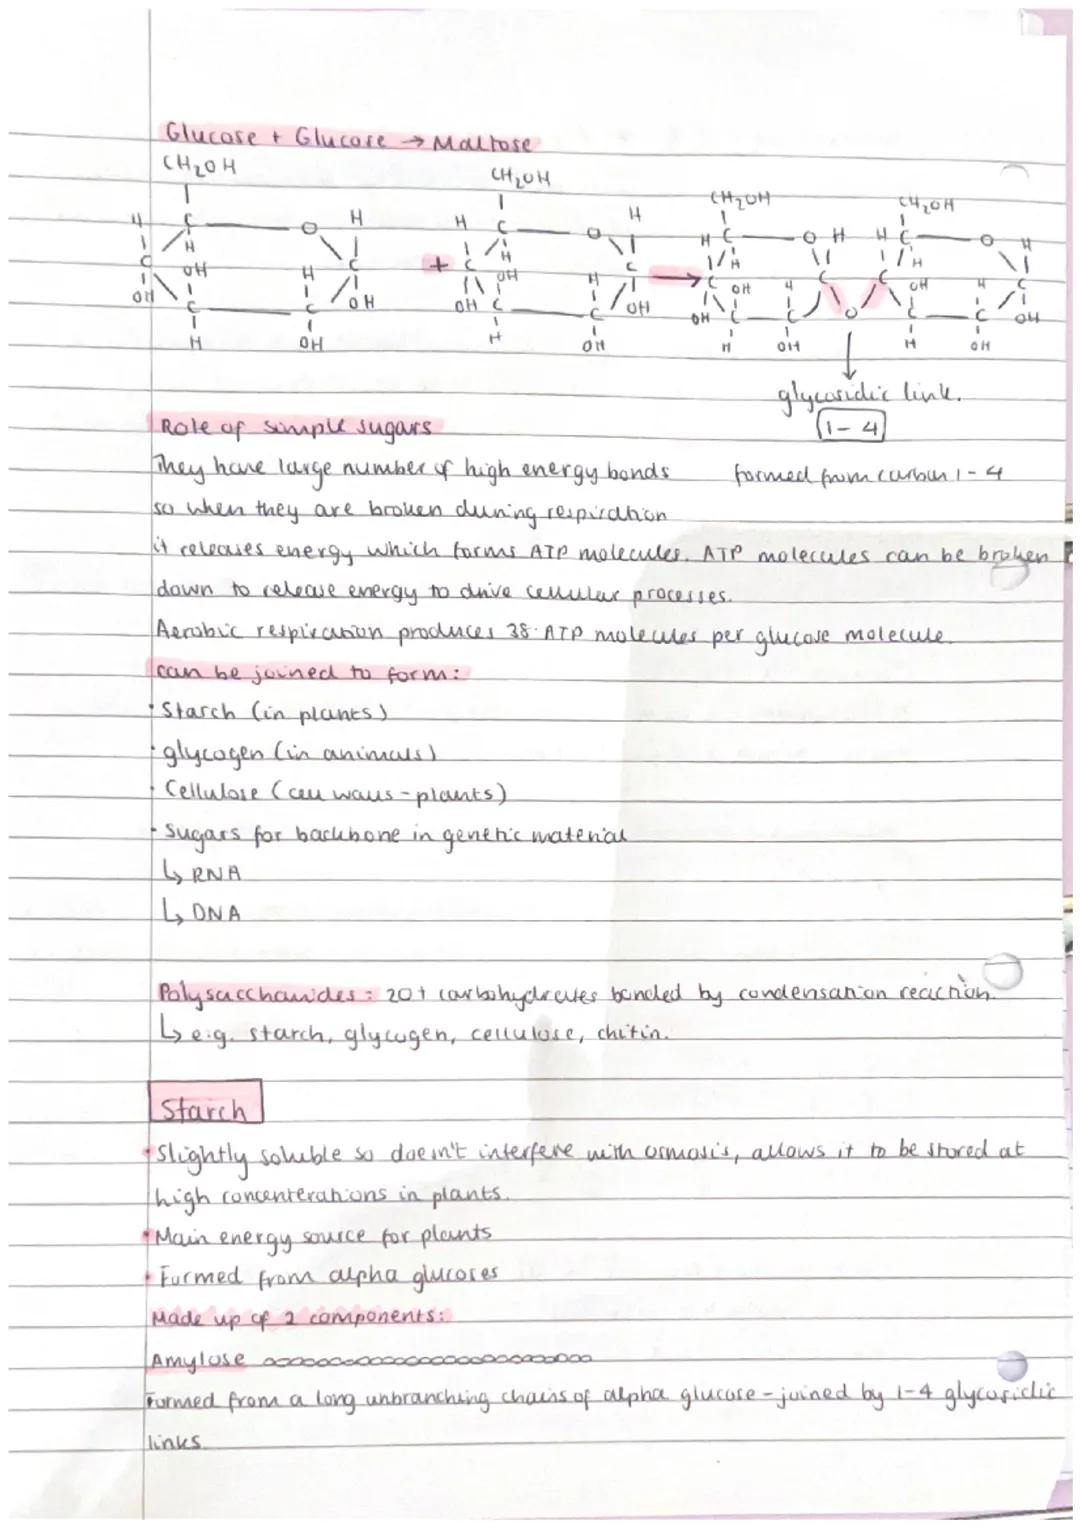 Glucose + Glucose → Maltose
CH₂OH CH₂OH CH₂OH CH₂OH
H C O H H C O H H C O H H C O H
C H OH H C + C H OH H C → C H OH H C C H OH H C
OH C C OH OH C C OH OH C C O C C OH
H OH H OH H OH H OH
glycosidic link.
1-4
Role of simple sugars
They have large number of high energy bonds formed from carbon 1-4
so when they are broken during respiration
it releases energy which forms ATP molecules. ATP molecules can be broken
down to release energy to drive cellular processes.
Aerobic respiration produces 38 ATP molecules per glucose molecule.
can be joined to form:
· Starch (in plants)
· glycogen (in animals)
· Cellulose (cell walls - plants)
· Sugars for backbone in genetic material
↳ RNA
↳ DNA
Polysaccharides: 20+ carbohydrates bonded by condensation reaction.
↳ e.g. starch, glycogen, cellulose, chitin.
Starch
• Slightly soluble so doesn't interfere with osmosis, allows it to be stored at
high concenterations in plants.
• Main energy source for plants
• Formed from alpha glucoses
Made up of 2 components:
Amylose
Formed from a long unbranching chains of alpha glucose - joined by 1-4 glycosidic
links.